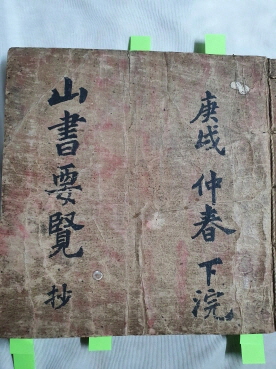 庚戌 仲春 下浣
山書要覽 抄